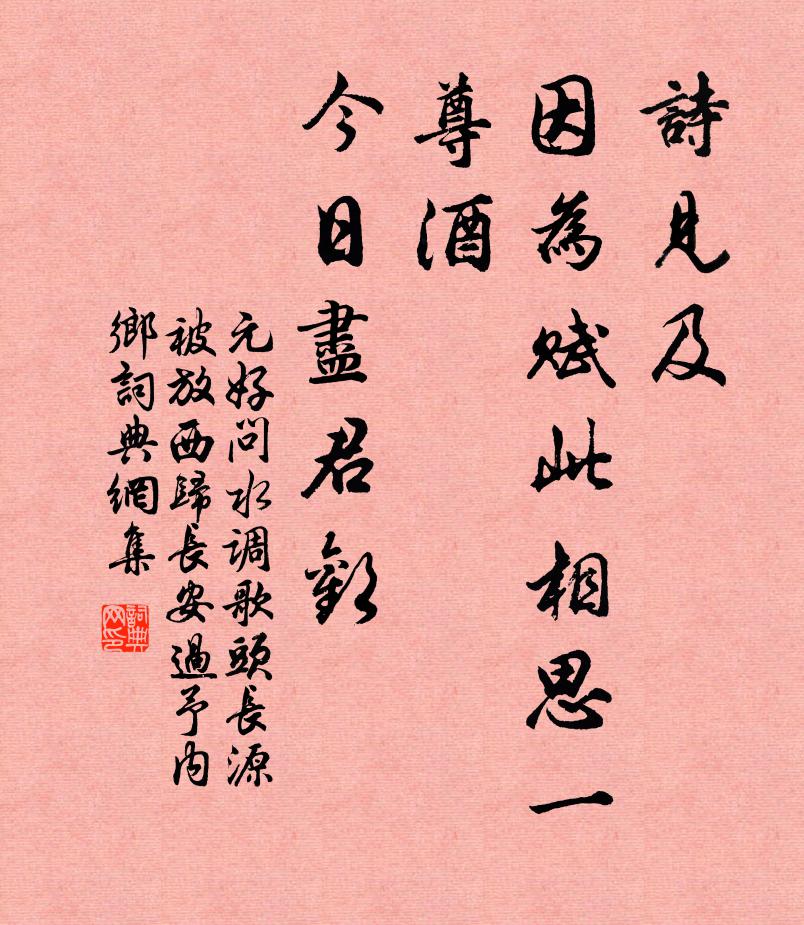 詩見及
因為賦此相思一
尊酒
今日盡君歡
元好問水调歌頭長源
被放西歸長安過予内
鄉詞典網集
詞典
网印